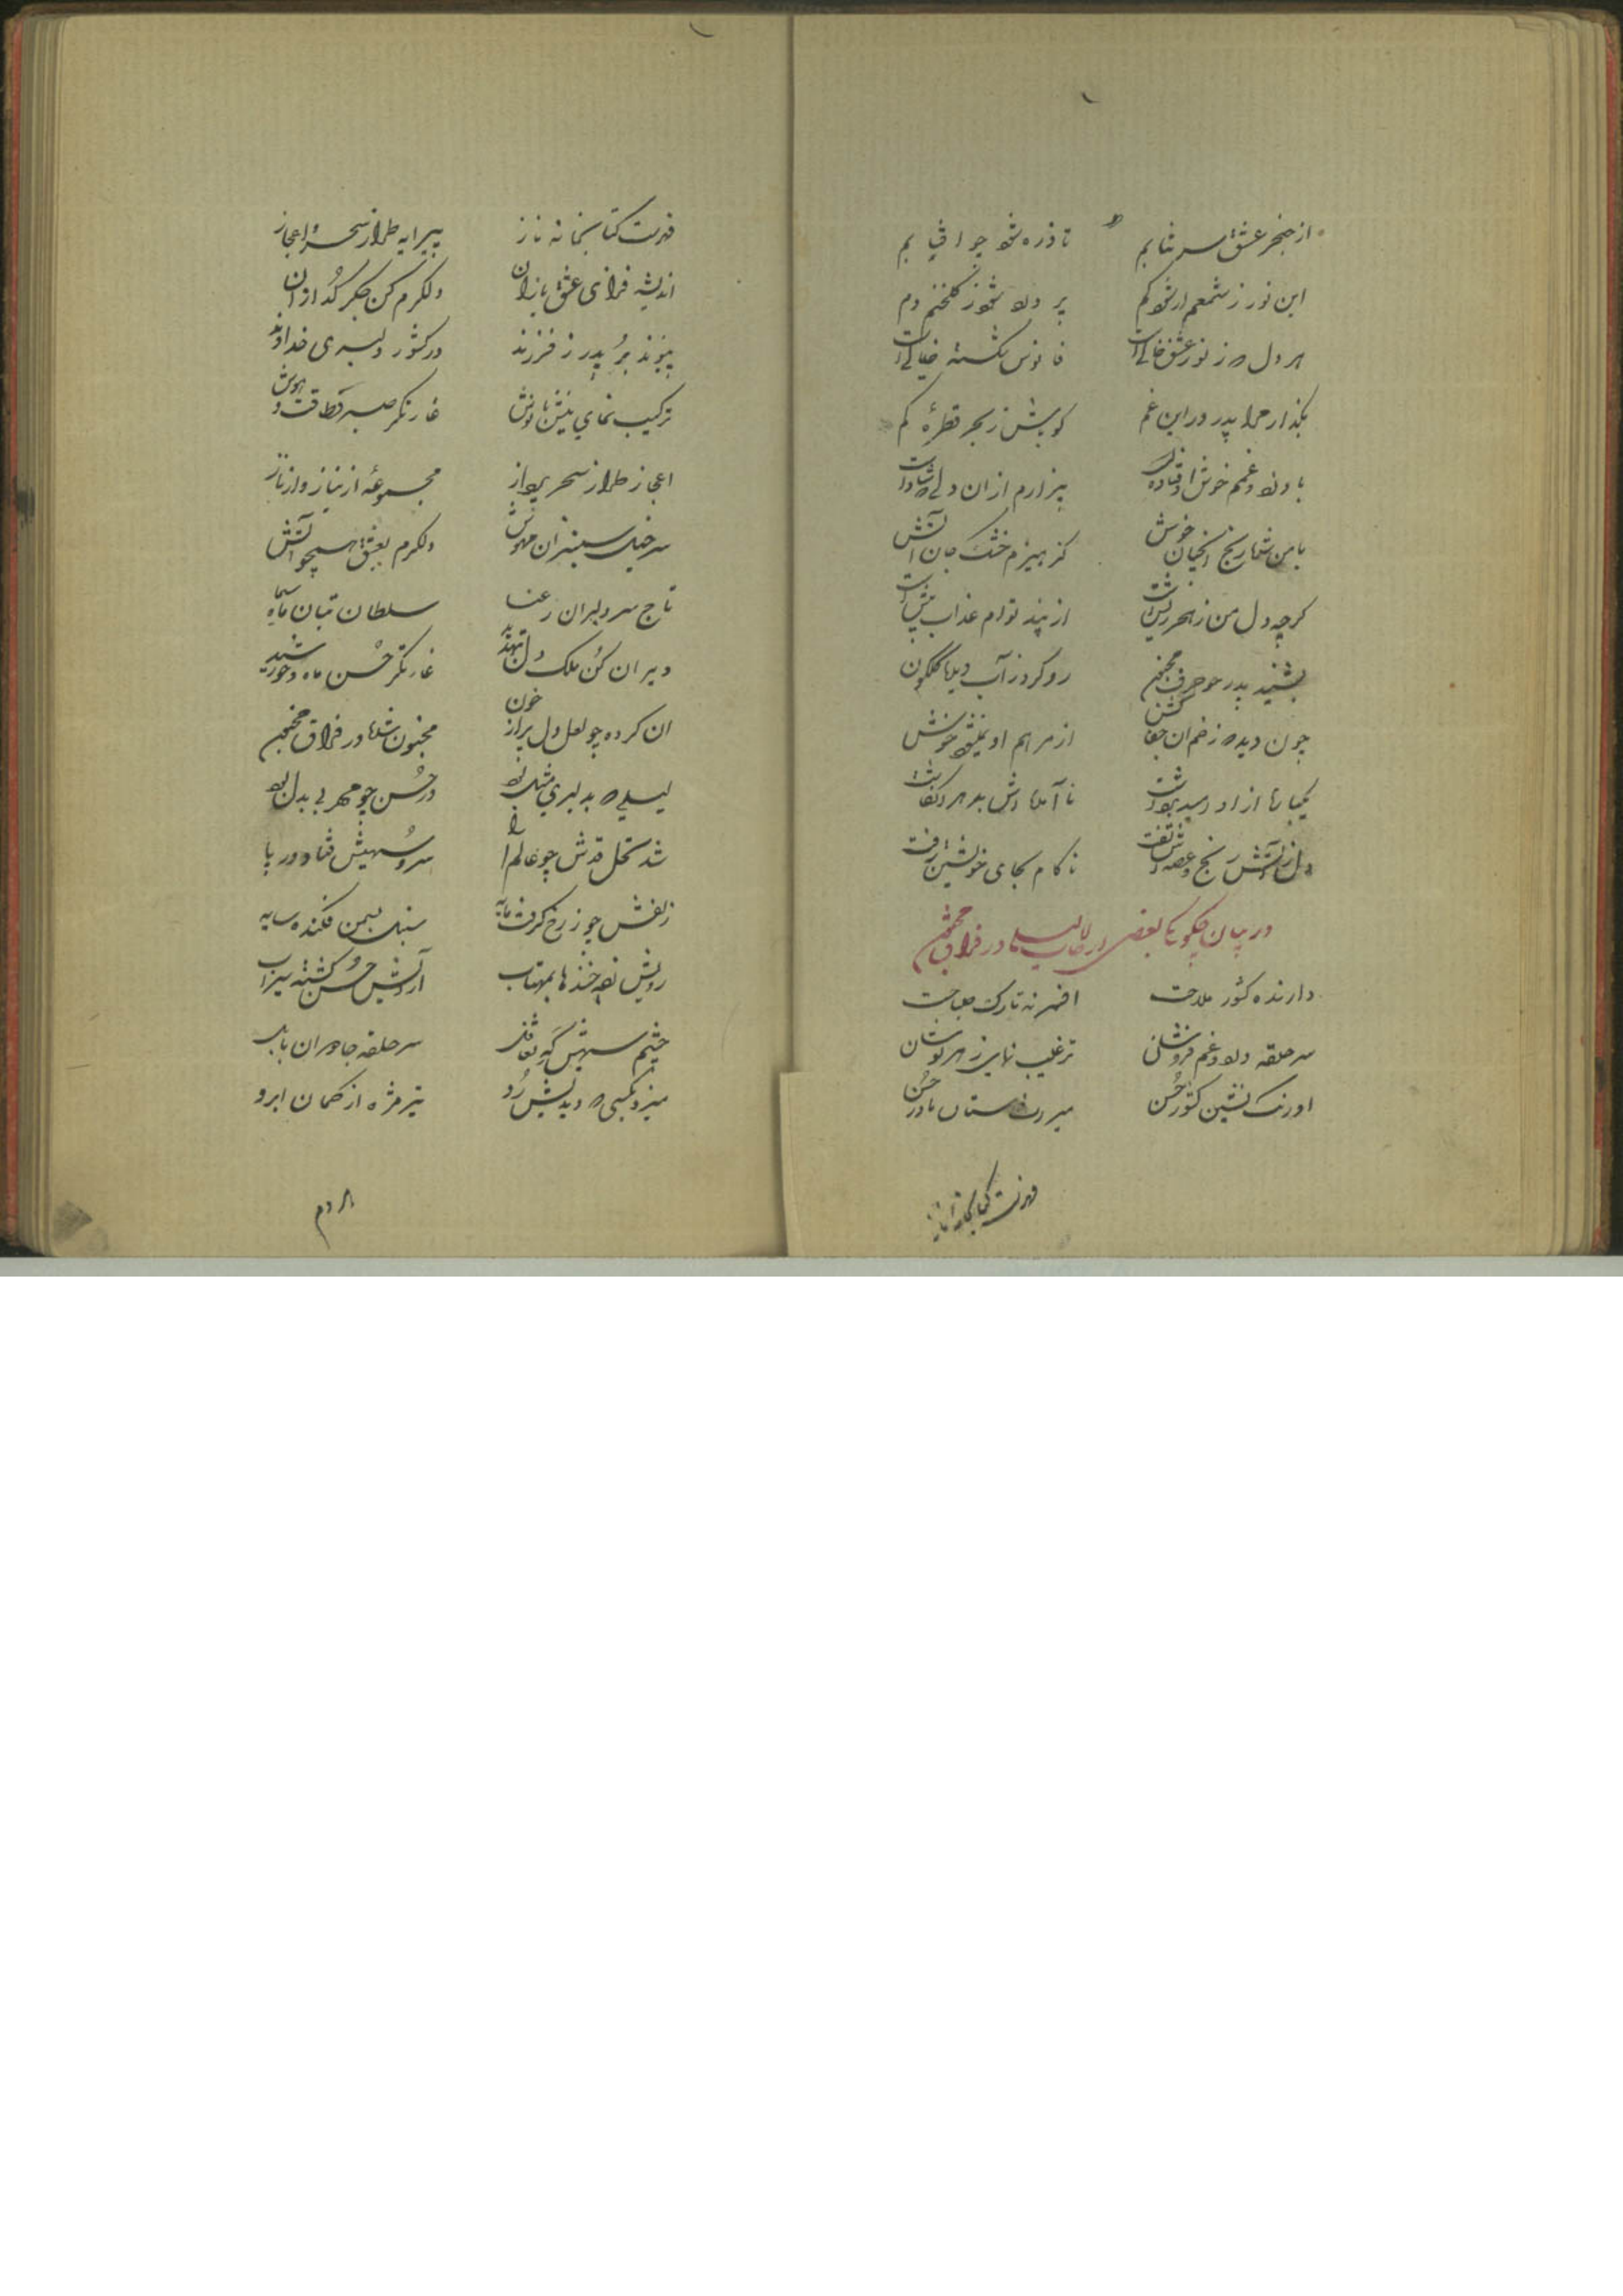 از خنجر عشق سر نتابم تا ذره شود چو آفتابم
این نور ز شمعم ار شود کم پر دود شود ز گلخنم دم
هر دل که ز نور عشق خالیست فانوس شکسته خیالیست
بگذار مرا پدر در این غم کو باش ز بحر قطرهٔ کم
با درد و غمم خوش اوفتادست بیزارم از آن دلی که شادست
با من شمار رنج آنچنان خوش کز هیزم خشک جان آتش
کرچه دل من ز هجر ریش است از پند توام عذاب بیش است
بشنید پدر چو حرف مجنون رو کرد ز آب دیده گلگون
چون دیده که زخم آن جفاکش از مرهم او نمیشود خوش
یکبار از او امید برداشت ناآمده‌اش بدهر انگاشت
دل ز آتش رنج و غصه‌اش تفت ناکام بجای خویشتن رفت
در بیان چگونگی بعضی از حالات لیلی در فراق مجنون
دارنده کشور ملاحت افسر نه تارک صباحت
سر حلقه درد و غم فروشان ترغیب نمای زهر نوشان
اورنگ نشین کشور حسن میر رمستان نادر حسن
فهرست کتابخانه ناز
فهرست کتابخانه ناز پیرایه طراز سحر و اعجاز
اندیشه فزای عشق بازان دلگرم کن جگر گدازان
پیوند بر پدر ز فرزند در کشور دلبری خداوند
ترکیب نمای نیش با نوش غارتگر صبر و طاقت و هوش
اعجاز طراز سحر پرداز مجموعهٔ از نیاز و از ناز
سرخیل سمنبران مهوش دلگرم بعشق همچو آتش
تاج سر دلبران رعنا سلطان بتان ماه سیما
ویران کن ملک دل بتهدید غارتگر حسن ماه و خورشید
آن کرده چو لعل دل پر از خون مجنون شده در فراق مجنون
لیلی که بدلبری مثل بود در حسن چو مهر بی بدل بود
شد نخل قدش چو عالم آرا سرو سهیش فتاد در پا
زلفش چو ز رخ گرفت مایه سنبل بسمن فکنده سایه
رویش زده خنده‌ها بمهتاب از آتش حسن گشته سیراب
چشم سیهش که تغافل سر حلقه جادوان بابل
میزد بکسی که دیدیش رو تیر مژه از کمان ابرو
هر دم